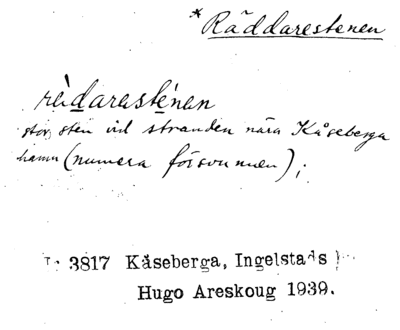 *Räddarestenen
rèdarasténen
stor sten vid stranden nära Kåseberga
hamn (numera försvunnen);
3817 Kåseberga, Ingelstads
Hugo Areskoug 1939.